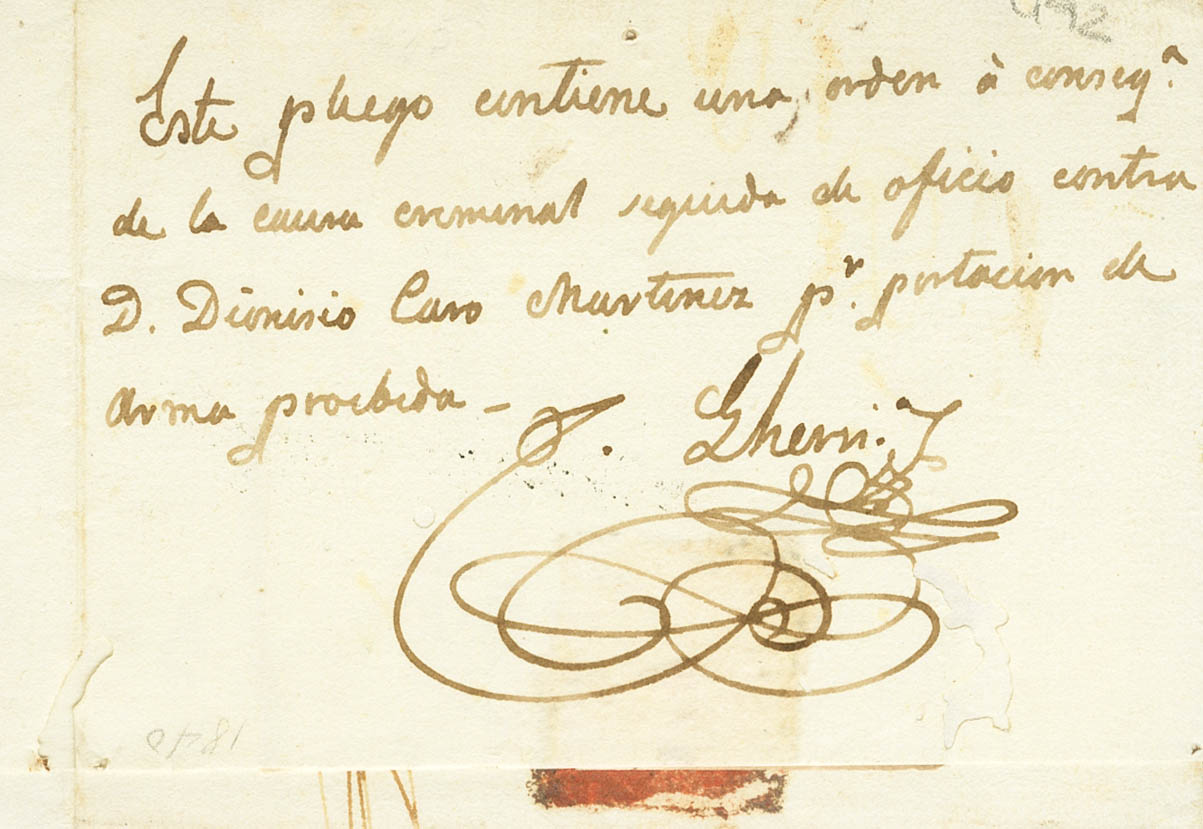 Este pliego contiene una orden à conseqª
de la causa creminal seguida de oficio contra
D. Dionisio Caro Martinez pʳ. portacion de
Arma proibida -
1840